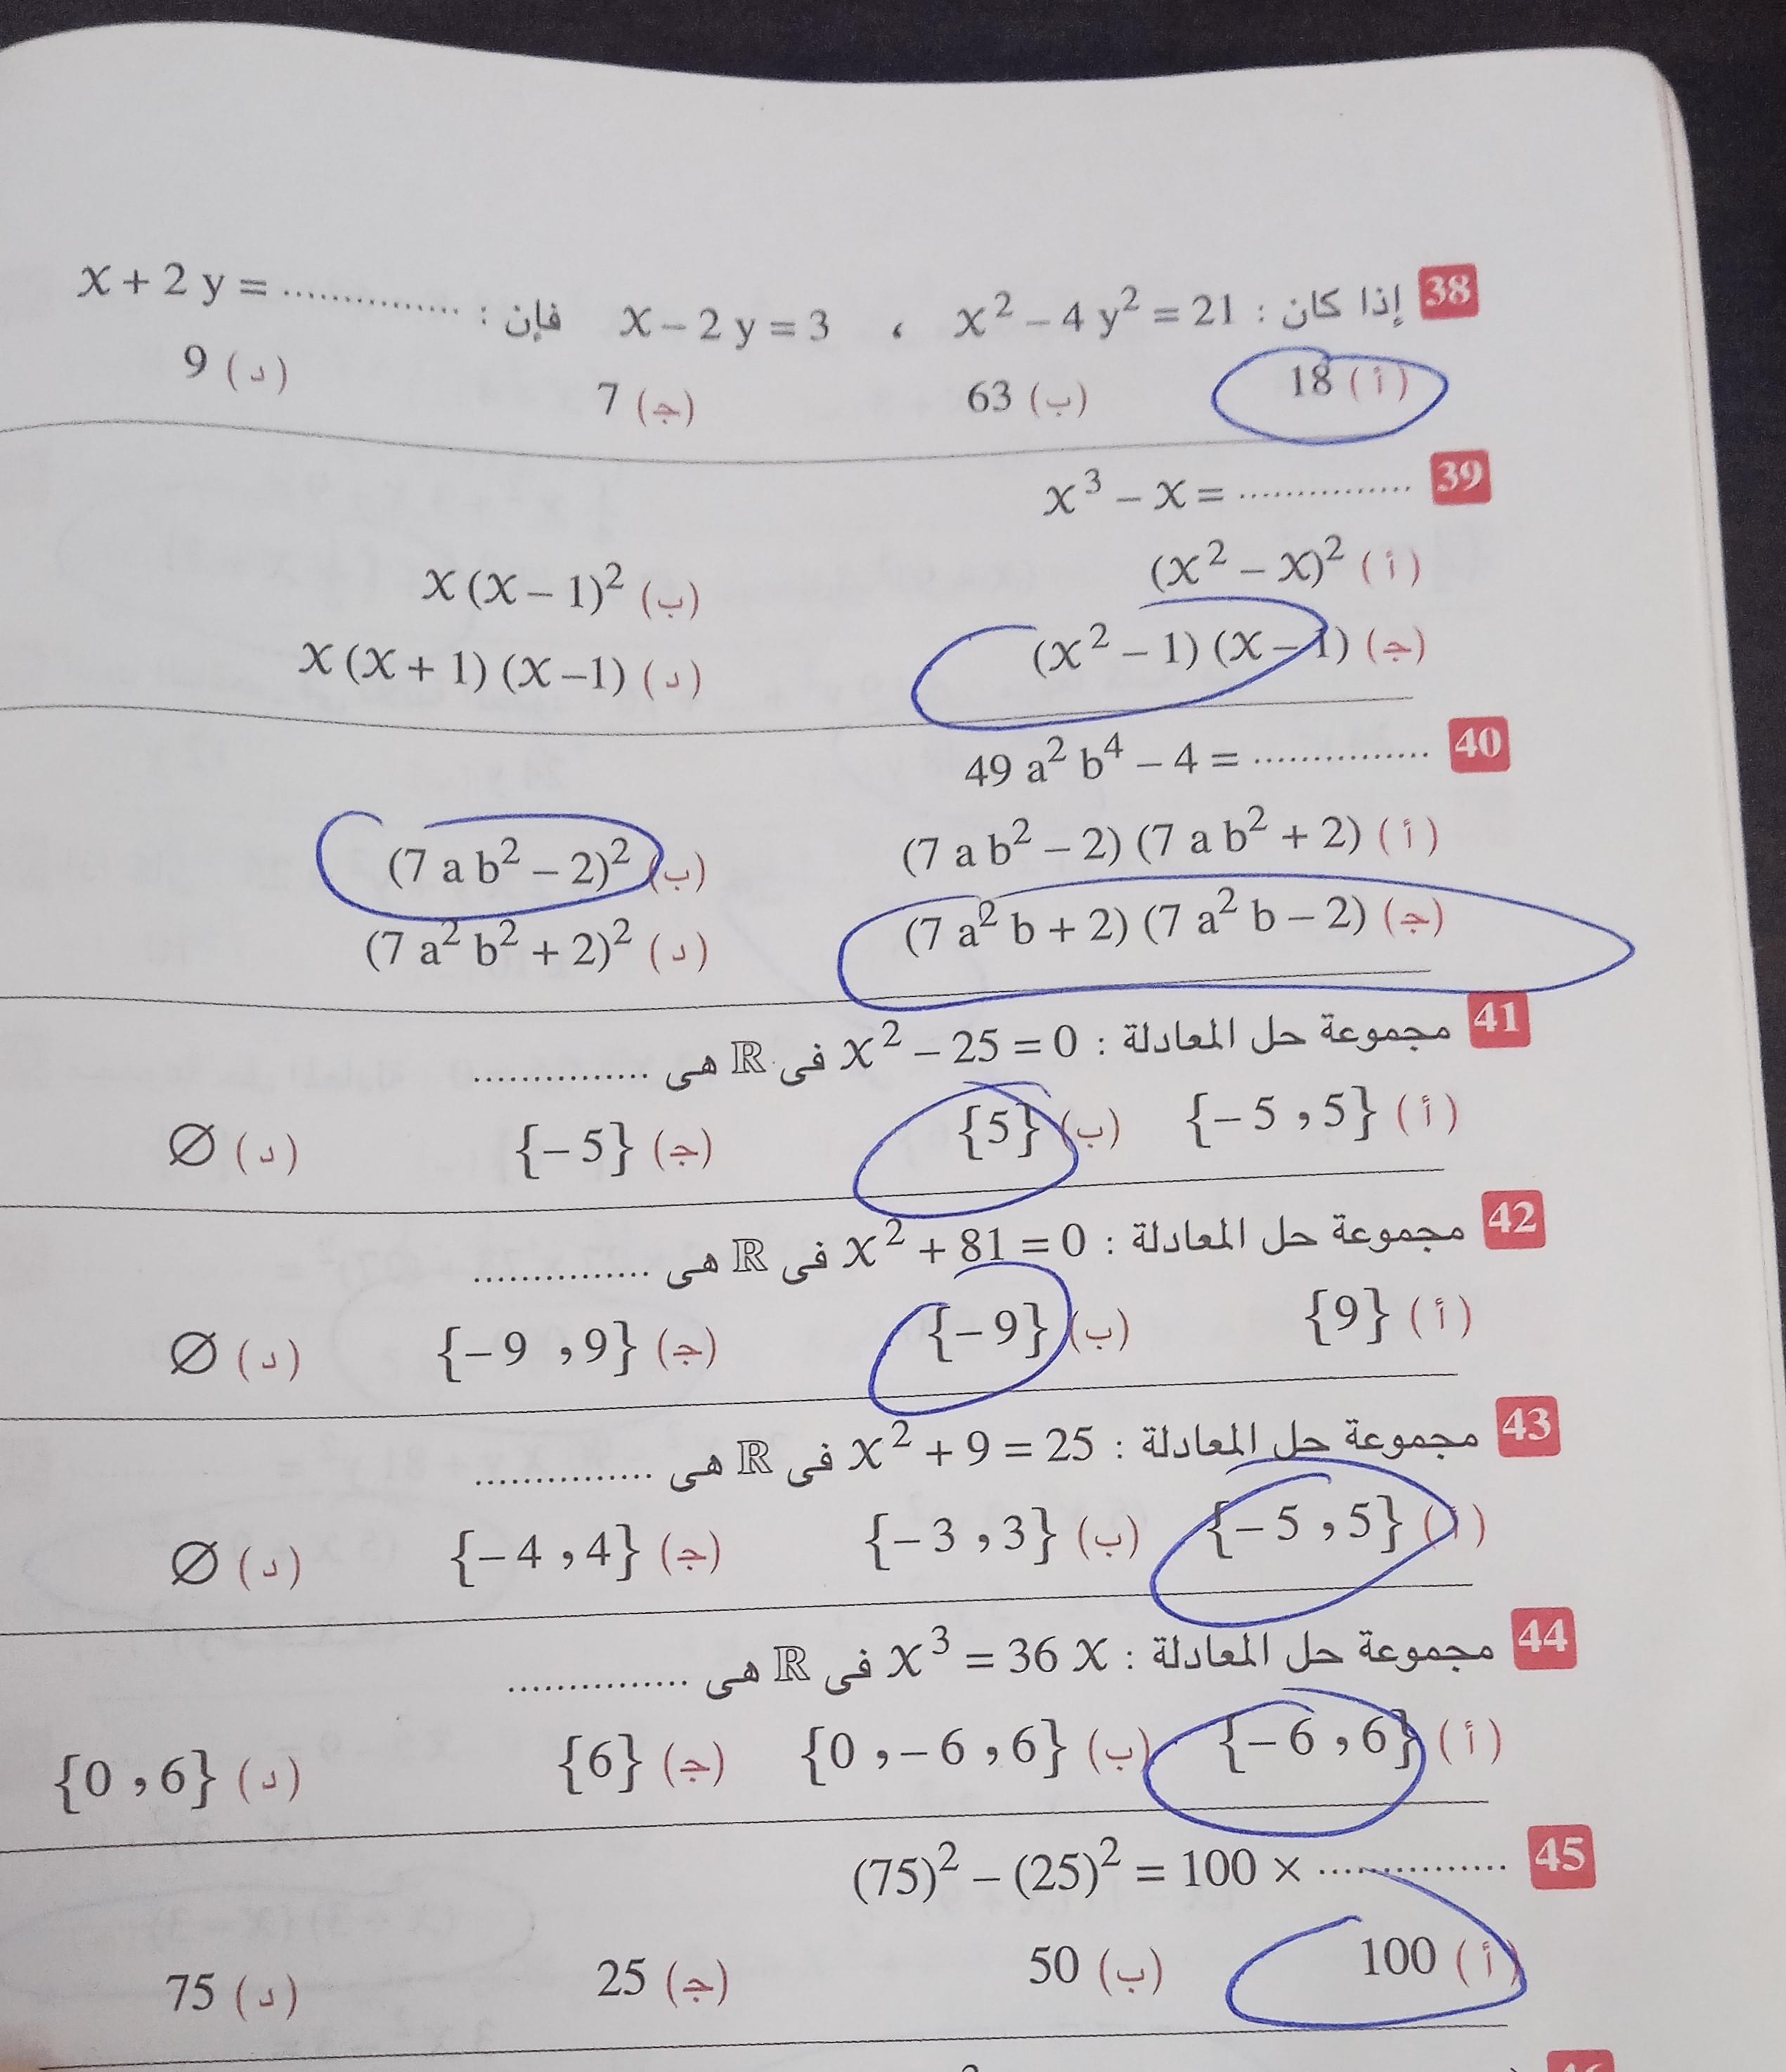 38 إذا كان : x² – 4 y² = 21 ، x – 2 y = 3 فإن : x + 2 y = ...............
(أ) 18 (ب) 63 (ج) 7 (د) 9
39 x³ – x = ...............
(أ) (x² – x)² (ب) x (x – 1)²
(ج) (x² – 1) (x – 1) (د) x (x + 1) (x –1)
40 49 a² b⁴ – 4 = ...............
(أ) (7 a b² – 2) (7 a b² + 2) (ب) (7 a b² – 2)²
(ج) (7 a² b + 2) (7 a² b – 2) (د) (7 a² b² + 2)²
41 مجموعة حل المعادلة : x² – 25 = 0 فى ℝ هى ...............
(أ) {– 5 , 5} (ب) {5} (ج) {– 5} (د) ∅
42 مجموعة حل المعادلة : x² + 81 = 0 فى ℝ هى ...............
(أ) {9} (ب) {– 9} (ج) {– 9 , 9} (د) ∅
43 مجموعة حل المعادلة : x² + 9 = 25 فى ℝ هى ...............
(أ) {– 5 , 5} (ب) {– 3 , 3} (ج) {– 4 , 4} (د) ∅
44 مجموعة حل المعادلة : x³ = 36 x فى ℝ هى ...............
(أ) {– 6 , 6} (ب) {0 , – 6 , 6} (ج) {6} (د) {0 , 6}
45 (75)² – (25)² = 100 × ...............
(أ) 100 (ب) 50 (ج) 25 (د) 75